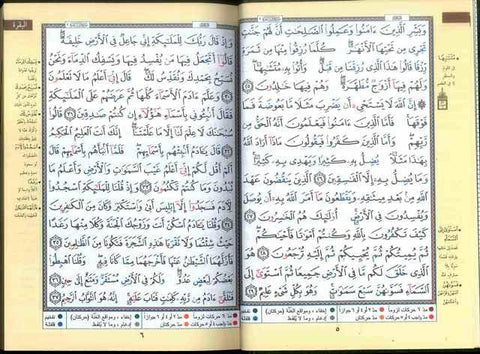 البقرة
وَبَشِّرِ ٱلَّذِينَ ءَامَنُوا۟ وَعَمِلُوا۟ ٱلصَّـٰلِحَـٰتِ أَنَّ لَهُمْ جَنَّـٰتٍ
تَجْرِى مِن تَحْتِهَا ٱلْأَنْهَـٰرُ ۖ كُلَّمَا رُزِقُوا۟ مِنْهَا مِن ثَمَرَةٍ
رِّزْقًا ۙ قَالُوا۟ هَـٰذَا ٱلَّذِى رُزِقْنَا مِن قَبْلُ ۖ وَأُتُوا۟ بِهِۦ مُتَشَـٰبِهًا ۖ
وَلَهُمْ فِيهَآ أَزْوَٰجٌ مُّطَهَّرَةٌ ۖ وَهُمْ فِيهَا خَـٰلِدُونَ ٢٥
۞ إِنَّ ٱللَّهَ لَا يَسْتَحْىِۦٓ أَن يَضْرِبَ مَثَلًا مَّا بَعُوضَةً فَمَا
فَوْقَهَا ۚ فَأَمَّا ٱلَّذِينَ ءَامَنُوا۟ فَيَعْلَمُونَ أَنَّهُ ٱلْحَقُّ مِن
رَّبِّهِمْ ۖ وَأَمَّا ٱلَّذِينَ كَفَرُوا۟ فَيَقُولُونَ مَاذَآ أَرَادَ ٱللَّهُ
بِهَـٰذَا مَثَلًا ۘ يُضِلُّ بِهِۦ كَثِيرًا وَيَهْدِى بِهِۦ كَثِيرًا ۚ
وَمَا يُضِلُّ بِهِۦٓ إِلَّا ٱلْفَـٰسِقِينَ ٢٦ ٱلَّذِينَ يَنقُضُونَ عَهْدَ
ٱللَّهِ مِنۢ بَعْدِ مِيثَـٰقِهِۦ وَيَقْطَعُونَ مَآ أَمَرَ ٱللَّهُ بِهِۦٓ أَن يُوصَلَ
وَيُفْسِدُونَ فِى ٱلْأَرْضِ ۚ أُو۟لَـٰٓئِكَ هُمُ ٱلْخَـٰسِرُونَ ٢٧
كَيْفَ تَكْفُرُونَ بِٱللَّهِ وَكُنتُمْ أَمْوَٰتًا فَأَحْيَـٰكُمْ ۖ
ثُمَّ يُمِيتُكُمْ ثُمَّ يُحْيِيكُمْ ثُمَّ إِلَيْهِ تُرْجَعُونَ ٢٨ هُوَ
ٱلَّذِى خَلَقَ لَكُم مَّا فِى ٱلْأَرْضِ جَمِيعًا ثُمَّ ٱسْتَوَىٰٓ إِلَى
ٱلسَّمَآءِ فَسَوَّىٰهُنَّ سَبْعَ سَمَـٰوَٰتٍ ۚ وَهُوَ بِكُلِّ شَىْءٍ عَلِيمٌ ٢٩
٥
وَإِذْ قَالَ رَبُّكَ لِلْمَلَـٰٓئِكَةِ إِنِّى جَاعِلٌ فِى ٱلْأَرْضِ خَلِيفَةً ۖ
قَالُوٓا۟ أَتَجْعَلُ فِيهَا مَن يُفْسِدُ فِيهَا وَيَسْفِكُ ٱلدِّمَآءَ وَنَحْنُ
نُسَبِّحُ بِحَمْدِكَ وَنُقَدِّسُ لَكَ ۖ قَالَ إِنِّىٓ أَعْلَمُ مَا لَا تَعْلَمُونَ
٣٠ وَعَلَّمَ ءَادَمَ ٱلْأَسْمَآءَ كُلَّهَا ثُمَّ عَرَضَهُمْ عَلَى ٱلْمَلَـٰٓئِكَةِ
فَقَالَ أَنۢبِـُٔونِى بِأَسْمَآءِ هَـٰٓؤُلَآءِ إِن كُنتُمْ صَـٰدِقِينَ ٣١ قَالُوا۟
سُبْحَـٰنَكَ لَا عِلْمَ لَنَآ إِلَّا مَا عَلَّمْتَنَآ ۖ إِنَّكَ أَنتَ ٱلْعَلِيمُ ٱلْحَكِيمُ
٣٢ قَالَ يَـٰٓـَٔادَمُ أَنۢبِئْهُم بِأَسْمَآئِهِمْ ۖ فَلَمَّآ أَنۢبَأَهُم بِأَسْمَآئِهِمْ قَالَ
أَلَمْ أَقُل لَّكُمْ إِنِّىٓ أَعْلَمُ غَيْبَ ٱلسَّمَـٰوَٰتِ وَٱلْأَرْضِ وَأَعْلَمُ مَا
تُبْدُونَ وَمَا كُنتُمْ تَكْتُمُونَ ٣٣ وَإِذْ قُلْنَا لِلْمَلَـٰٓئِكَةِ ٱسْجُدُوا۟
لِـَٔادَمَ فَسَجَدُوٓا۟ إِلَّآ إِبْلِيسَ أَبَىٰ وَٱسْتَكْبَرَ وَكَانَ مِنَ ٱلْكَـٰفِرِينَ
٣٤ وَقُلْنَا يَـٰٓـَٔادَمُ ٱسْكُنْ أَنتَ وَزَوْجُكَ ٱلْجَنَّةَ وَكُلَا مِنْهَا رَغَدًا
حَيْثُ شِئْتُمَا وَلَا تَقْرَبَا هَـٰذِهِ ٱلشَّجَرَةَ فَتَكُونَا مِنَ ٱلظَّـٰلِمِينَ ٣٥
فَأَزَلَّهُمَا ٱلشَّيْطَـٰنُ عَنْهَا فَأَخْرَجَهُمَا مِمَّا كَانَا فِيهِ ۖ وَقُلْنَا ٱهْبِطُوا۟
بَعْضُكُمْ لِبَعْضٍ عَدُوٌّ ۖ وَلَكُمْ فِى ٱلْأَرْضِ مُسْتَقَرٌّ وَمَتَـٰعٌ إِلَىٰ حِينٍ
٣٦ فَتَلَقَّىٰٓ ءَادَمُ مِن رَّبِّهِۦ كَلِمَـٰتٍ فَتَابَ عَلَيْهِ ۚ إِنَّهُۥ هُوَ ٱلتَّوَّابُ ٱلرَّحِيمُ ٣٧
٦